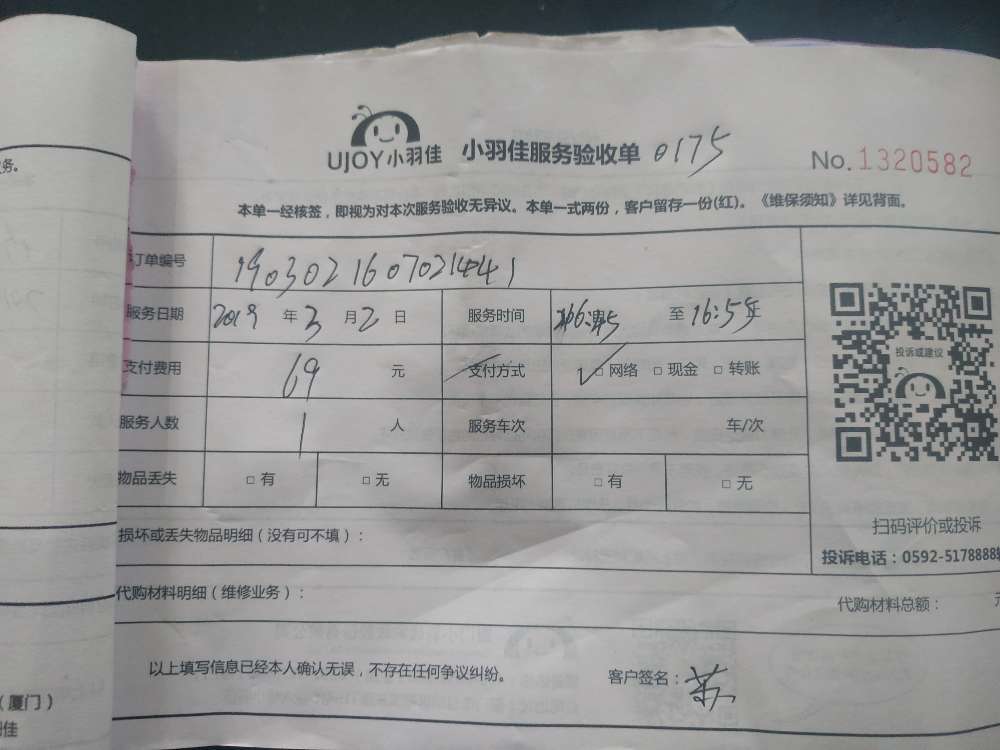 务。
UJOY小羽佳 小羽佳服务验收单 0175 No.1320582
本单一经核签，即视为对本次服务验收无异议。本单一式两份，客户留存一份(红)。《维保须知》详见背面。
订单编号 1903021607021441
服务日期 2019 年 3 月 2 日 服务时间 至 16:55
支付费用 69 元 支付方式 ✓□ 网络 □ 现金 □ 转账
服务人数 1 人 服务车次 车/次
物品丢失 □ 有 □ 无 物品损坏 □ 有 □ 无
投诉或建议
扫码评价或投诉
投诉电话：0592-5178888
损坏或丢失物品明细（没有可不填）：
代购材料明细（维修业务）： 代购材料总额：
以上填写信息已经本人确认无误，不存在任何争议纠纷。 客户签名：
（厦门）
佳